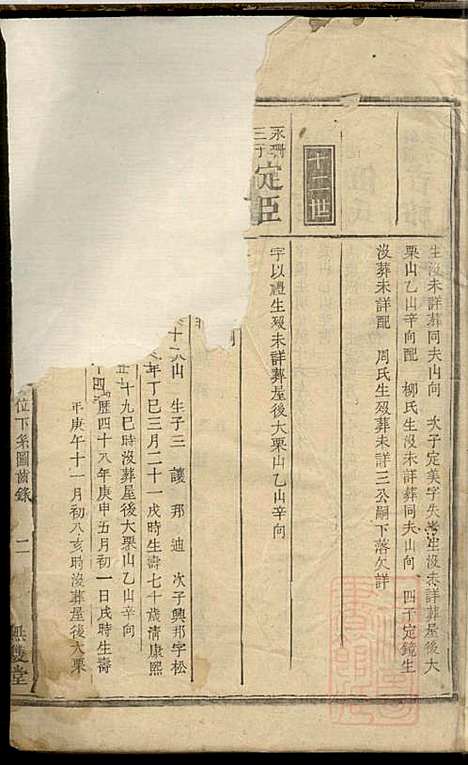 生沒未詳葬同夫山向 次子定美字失考生沒未詳葬屋後大
栗山乙山辛向配 柳氏生沒未詳葬同夫山向 四子定鏡生
沒葬未詳配 周氏生殁葬未詳三公嗣下落欠詳
十二世
永珊
三子
定臣
字以禮生殁未詳葬屋後大栗山乙山辛向
山 生子三 讓 邦 迪 次子興邦字松
年丁巳三月二十一戌時生壽七十歲清康熙
十九巳時沒葬屋後大栗山乙山辛向
曆四十八年庚申五月初一日戌時生壽
年庚午十一月初八亥時沒葬屋後大栗
位下系圖齒錄
二
無雙堂